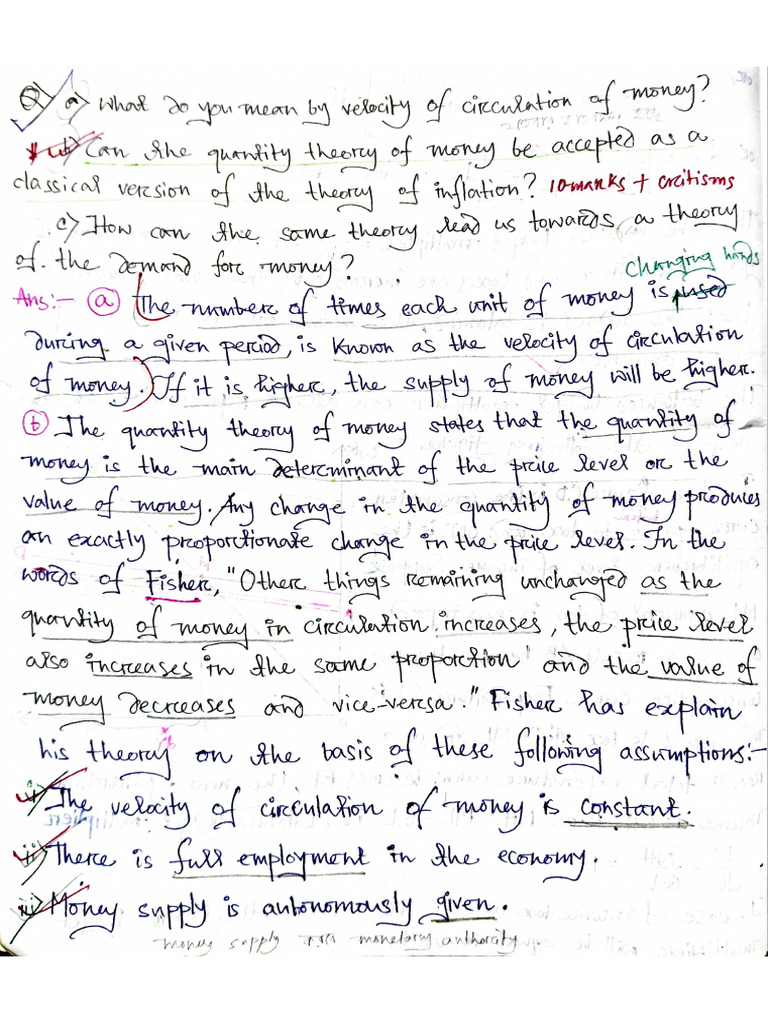 Q) a) What do you mean by velocity of circulation of money?
b) Can the quantity theory of money be accepted as a
classical version of the theory of inflation? 10 marks + critisms
c) How can the same theory lead us towards a theory
of the demand for money?
changing hands
Ans:- (a) The number of times each unit of money is used
during a given period, is known as the velocity of circulation
of money. If it is higher, the supply of money will be higher.
(b) The quantity theory of money states that the quantity of
money is the main determinant of the price level or the
value of money. Any change in the quantity of money produces
an exactly proportionate change in the price level. In the
words of Fisher, "Other things remaining unchanged as the
quantity of money in circulation increases, the price level
also increases in the same proportion and the value of
money decreases and vice-versa." Fisher has explain
his theory on the basis of these following assumptions:-
i) The velocity of circulation of money is constant.
ii) There is full employment in the economy.
iii) Money supply is autonomously given.
money supply monetary authority